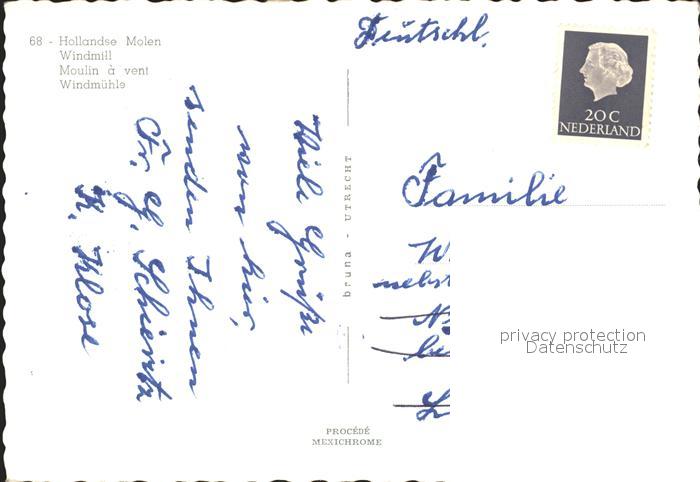 68 - Hollandse Molen
Windmill
Moulin à vent
Windmühle
Deutschl.
20 C
NEDERLAND
Familie
W
nebst
bruna - UTRECHT
Viele Grüße
von hier,
senden Ihnen
Fr. G. Schieritz
K. Klose
privacy protection
Datenschutz
PROCÉDÉ
MEXICHROME